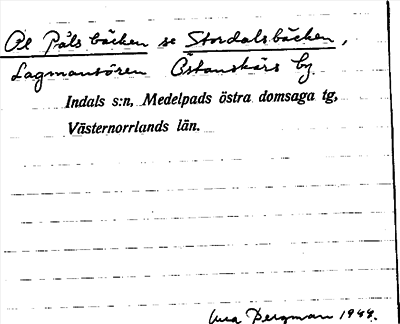 Pål Påls bäcken se Stordalsbäcken,
Lagmansören Östanskärs by.
Indals s:n, Medelpads östra domsaga tg,
Västernorrlands län.
Bergman 1944.